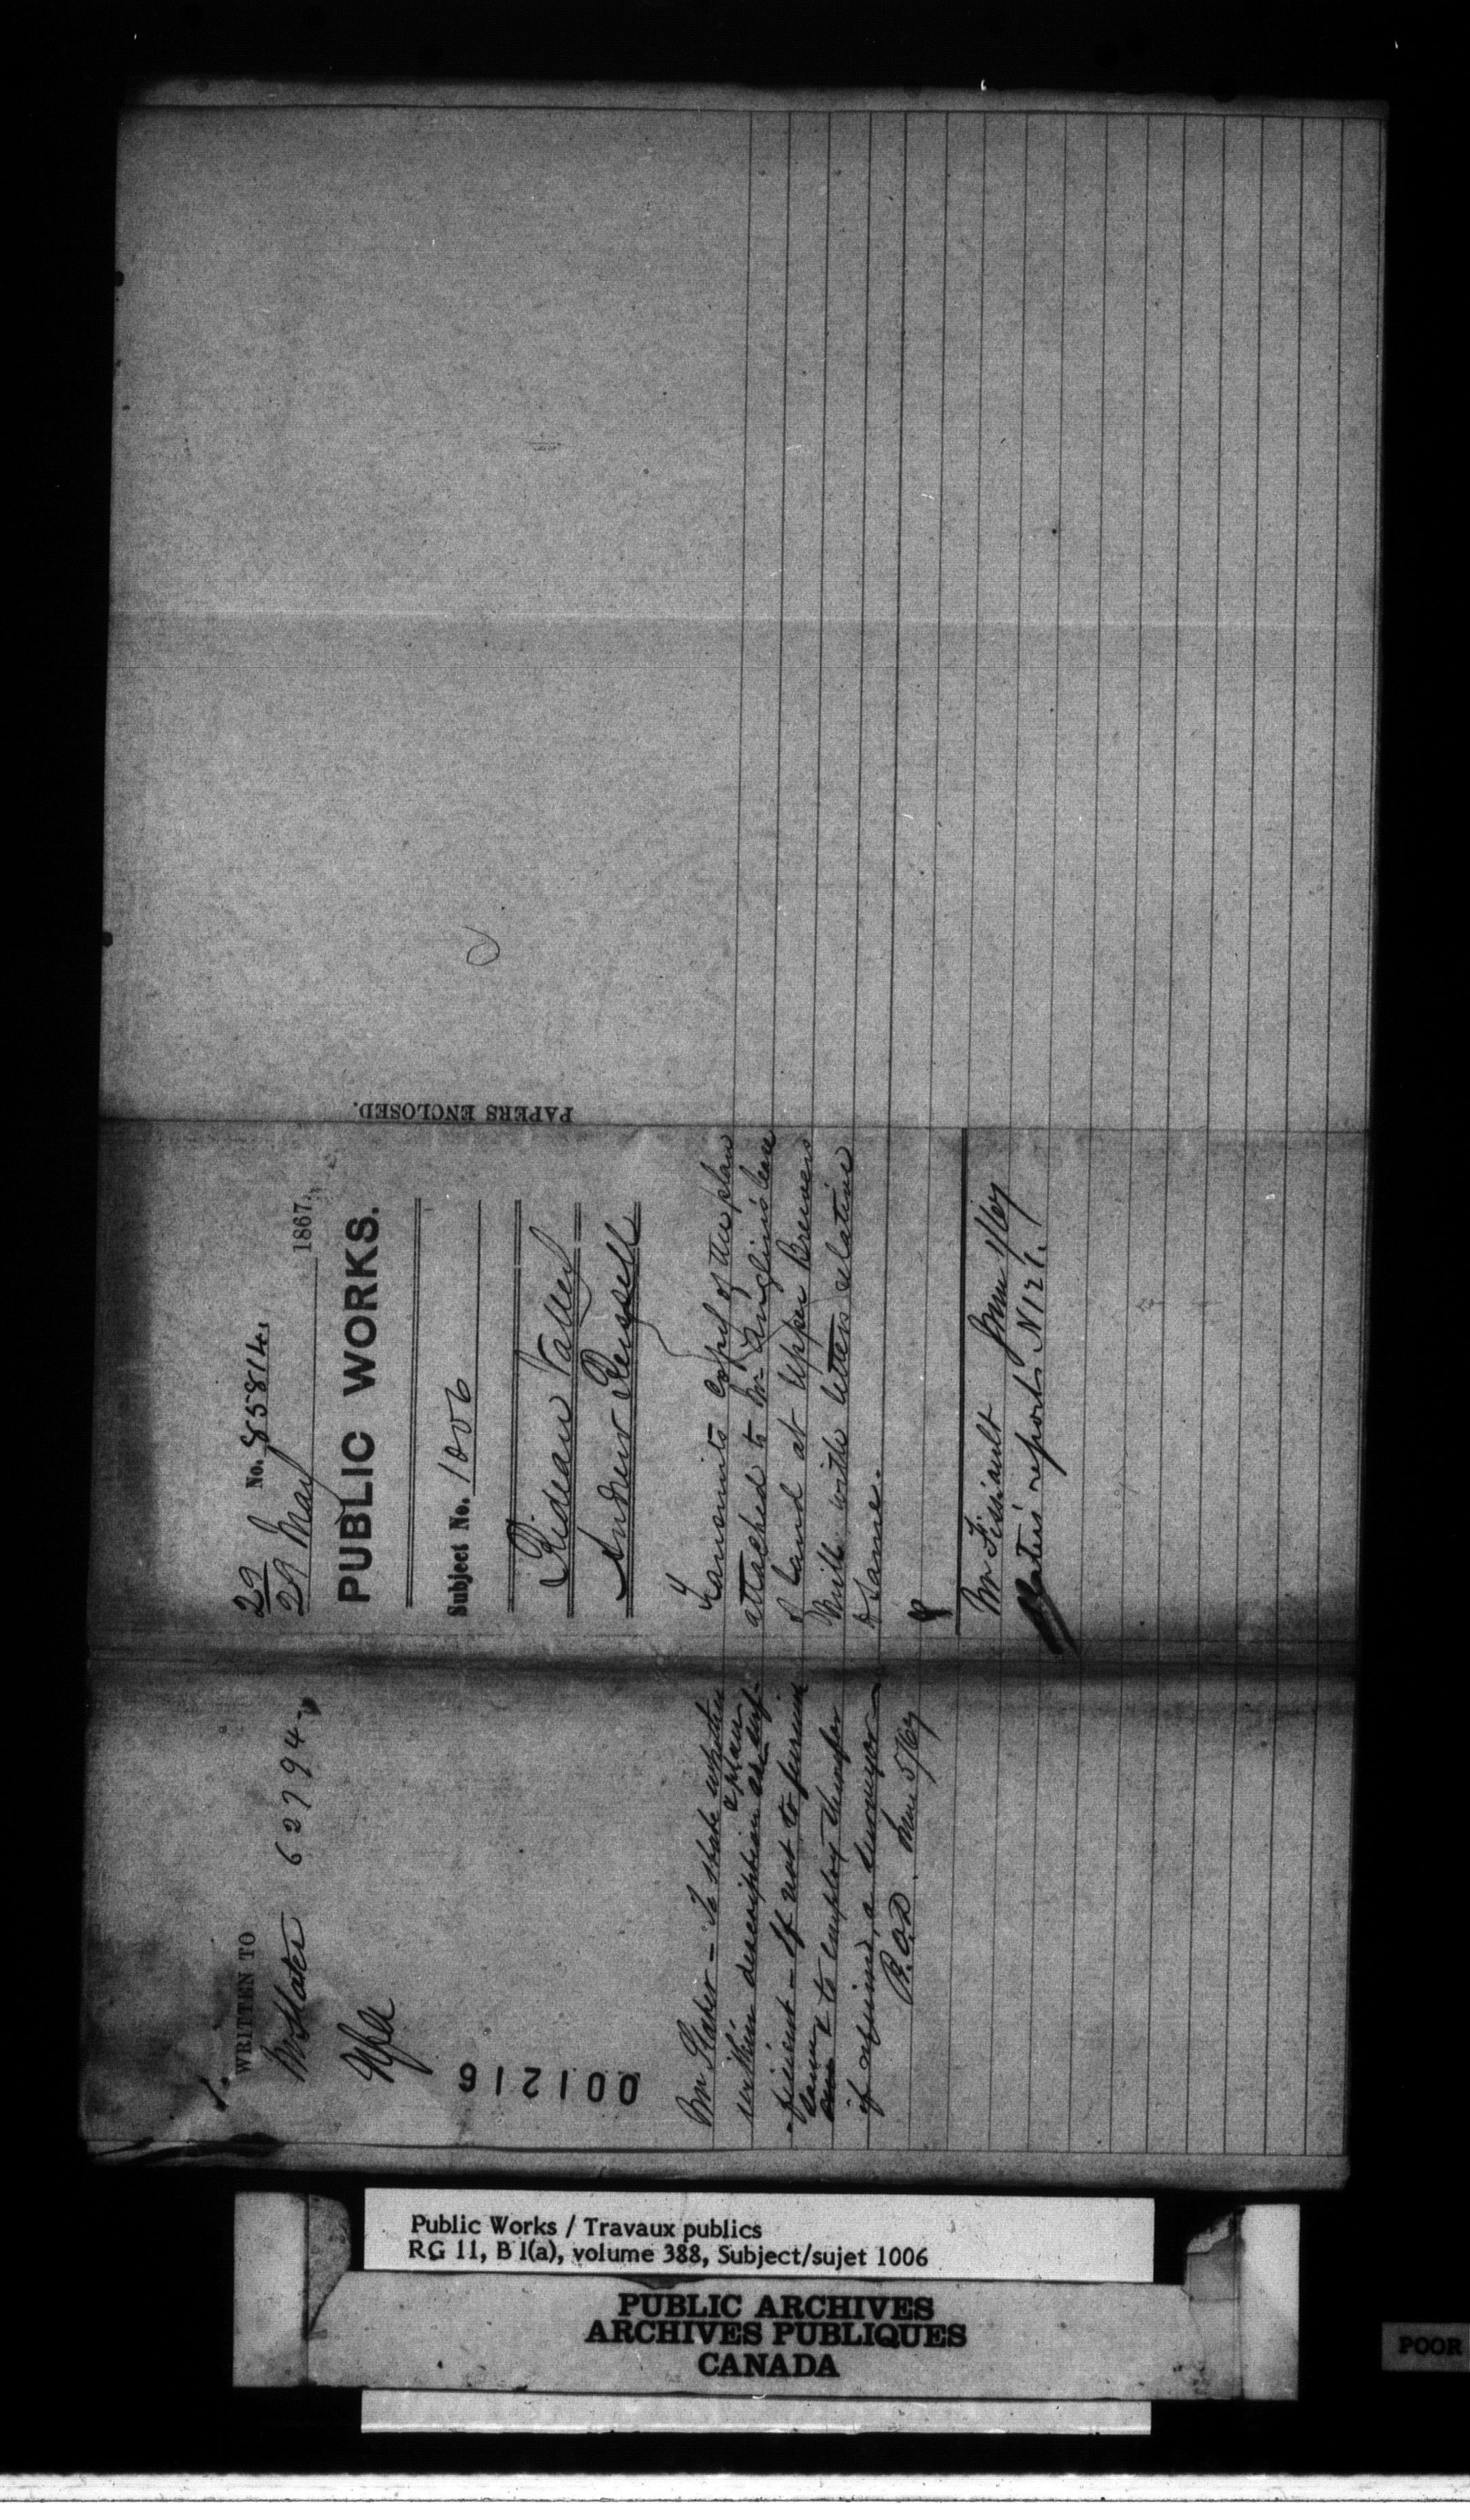 WRITTEN TO
Mr Slater 62794
001216
Mr Slater - To state whether
within description & plan are suf-
-ficient - If not to furnish
same & to employ therefor
if required, a surveyor -
June 5/67
29 No. 85814
29 May 1867.
PUBLIC WORKS.
Subject No. 1006
Rideau Valley
Andrew Russell
Transmits copy of the plan
attached to Mr Anglin's lease
of land at Upper Brewers
Mills with letters relative
to same.
Mr Fissiault June 1/67
Slater's reports
PAPERS ENCLOSED.
Public Works / Travaux publics
RG 11, B 1(a), volume 388, Subject/sujet 1006
PUBLIC ARCHIVES
ARCHIVES PUBLIQUES
CANADA
POOR